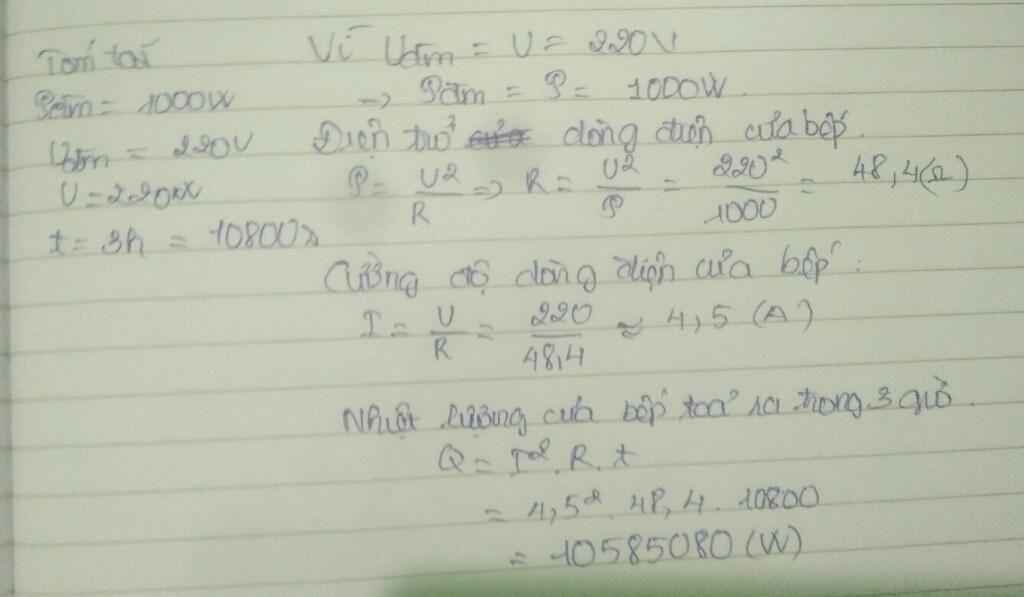 Tóm tắt
Pđm = 1000W
Uđm = 220V
U = 220V
t = 3h = 10800s
Vì Uđm = U = 220V
=> Pđm = P = 1000W.
Điện trở của dòng điện của bếp.
P = U²/R => R = U²/P = 220²/1000 = 48,4(Ω)
Cường độ dòng điện của bếp:
I = U/R = 220/48,4 ≈ 4,5 (A)
Nhiệt lượng của bếp toả ra trong 3 giờ.
Q = I². R. t
= 4,5². 48,4. 10800
= 10585080 (W)